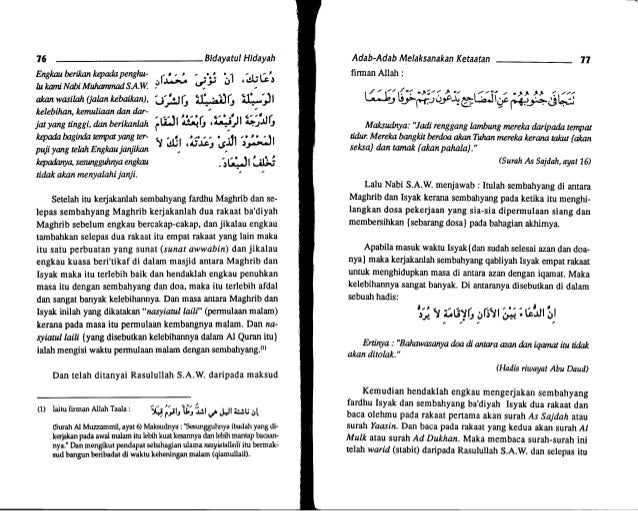 76 Bidayatul Hidayah
Engkau berikan kepada penghu-
lu kami Nabi Muhammad S.A.W.
akan wasilah (jalan kebaikan),
kelebihan, kemuliaan dan dar-
jat yang tinggi, dan berikanlah
kepada baginda tempat yang ter-
puji yang telah Engkau janjikan
kepadanya, sesungguhnya engkau
tidak akan menyalahi janji.
دُعَاتِكَ، أَنْ تُؤْتِيَ مُحَمَّدًا
الْوَسِيْلَةَ وَالْفَضِيْلَةَ وَالشَّرَفَ،
وَالدَّرَجَةَ الرَّفِيْعَةَ، وَابْعَثْهُ الْمَقَامَ
الْمَحْمُوْدَ الَّذِي وَعَدْتَهُ، إِنَّكَ لَا
تُخْلِفُ الْمِيْعَادَ.
Setelah itu kerjakanlah sembahyang fardhu Maghrib dan se-
lepas sembahyang Maghrib kerjakanlah dua rakaat ba'diyah
Maghrib sebelum engkau bercakap-cakap, dan jikalau engkau
tambahkan selepas dua rakaat itu empat rakaat yang lain maka
itu satu perbuatan yang sunat (sunat awwabin) dan jikalau
engkau kuasa beri'tikaf di dalam masjid antara Maghrib dan
Isyak maka itu terlebih baik dan hendaklah engkau penuhkan
masa itu dengan sembahyang dan doa, maka itu terlebih afdal
dan sangat banyak kelebihannya. Dan masa antara Maghrib dan
Isyak inilah yang dikatakan "nasyiatul laili" (permulaan malam)
kerana pada masa itu permulaan kembangnya malam. Dan na-
syiatul laili (yang disebutkan kelebihannya dalam Al Quran itu)
ialah mengisi waktu permulaan malam dengan sembahyang.(1)
Dan telah ditanyai Rasulullah S.A.W. daripada maksud
(1) Iaitu firman Allah Taala : إن ناشئة اليل هي أشد وطأ وأقوم قيلا
(Surah Al Muzzammil, ayat 6) Maksudnya : "Sesungguhnya ibadah yang di-
kerjakan pada awal malam itu lebih kuat kesannya dan lebih mantap bacaan-
nya." Dan mengikut pendapat sebahagian ulama nasyiatullaili itu bermak-
sud bangun beribadat di waktu keheningan malam (qiamullail).
Adab-Adab Melaksanakan Ketaatan 77
firman Allah :
تَتَجَافَى جُنُوبُهُمْ عَنِ الْمَضَاجِعِ يَدْعُونَ رَبَّهُمْ خَوْفًا وَطَمَعًا
Maksudnya: "Jadi renggang lambung mereka daripada tempat
tidur. Mereka bangkit berdoa akan Tuhan mereka kerana takut (akan
seksa) dan tamak (akan pahala)."
(Surah As Sajdah, ayat 16)
Lalu Nabi S.A.W. menjawab : Itulah sembahyang di antara
Maghrib dan Isyak kerana sembahyang pada ketika itu menghi-
langkan dosa pekerjaan yang sia-sia dipermulaan siang dan
membersihkan (sebarang dosa) pada bahagian akhirnya.
Apabila masuk waktu Isyak (dan sudah selesai azan dan doa-
nya) maka kerjakanlah sembahyang qabliyah Isyak empat rakaat
untuk menghidupkan masa di antara azan dengan iqamat. Maka
kelebihannya sangat banyak. Di antaranya disebutkan di dalam
sebuah hadis:
أَنَّ الدُّعَاءَ بَيْنَ الْأَذَانِ وَالْإِقَامَةِ لَا يُرَدُّ
Ertinya : "Bahawasanya doa di antara azan dan iqamat itu tidak
akan ditolak."
(Hadis riwayat Abu Daud)
Kemudian hendaklah engkau mengerjakan sembahyang
fardhu Isyak dan sembahyang ba'diyah Isyak dua rakaat dan
baca olehmu pada rakaat pertama akan surah As Sajdah atau
surah Yaasin. Dan baca pada rakaat yang kedua akan surah Al
Mulk atau surah Ad Dukhan. Maka membaca surah-surah ini
telah warid (stabit) daripada Rasulullah S.A.W. dan selepas itu